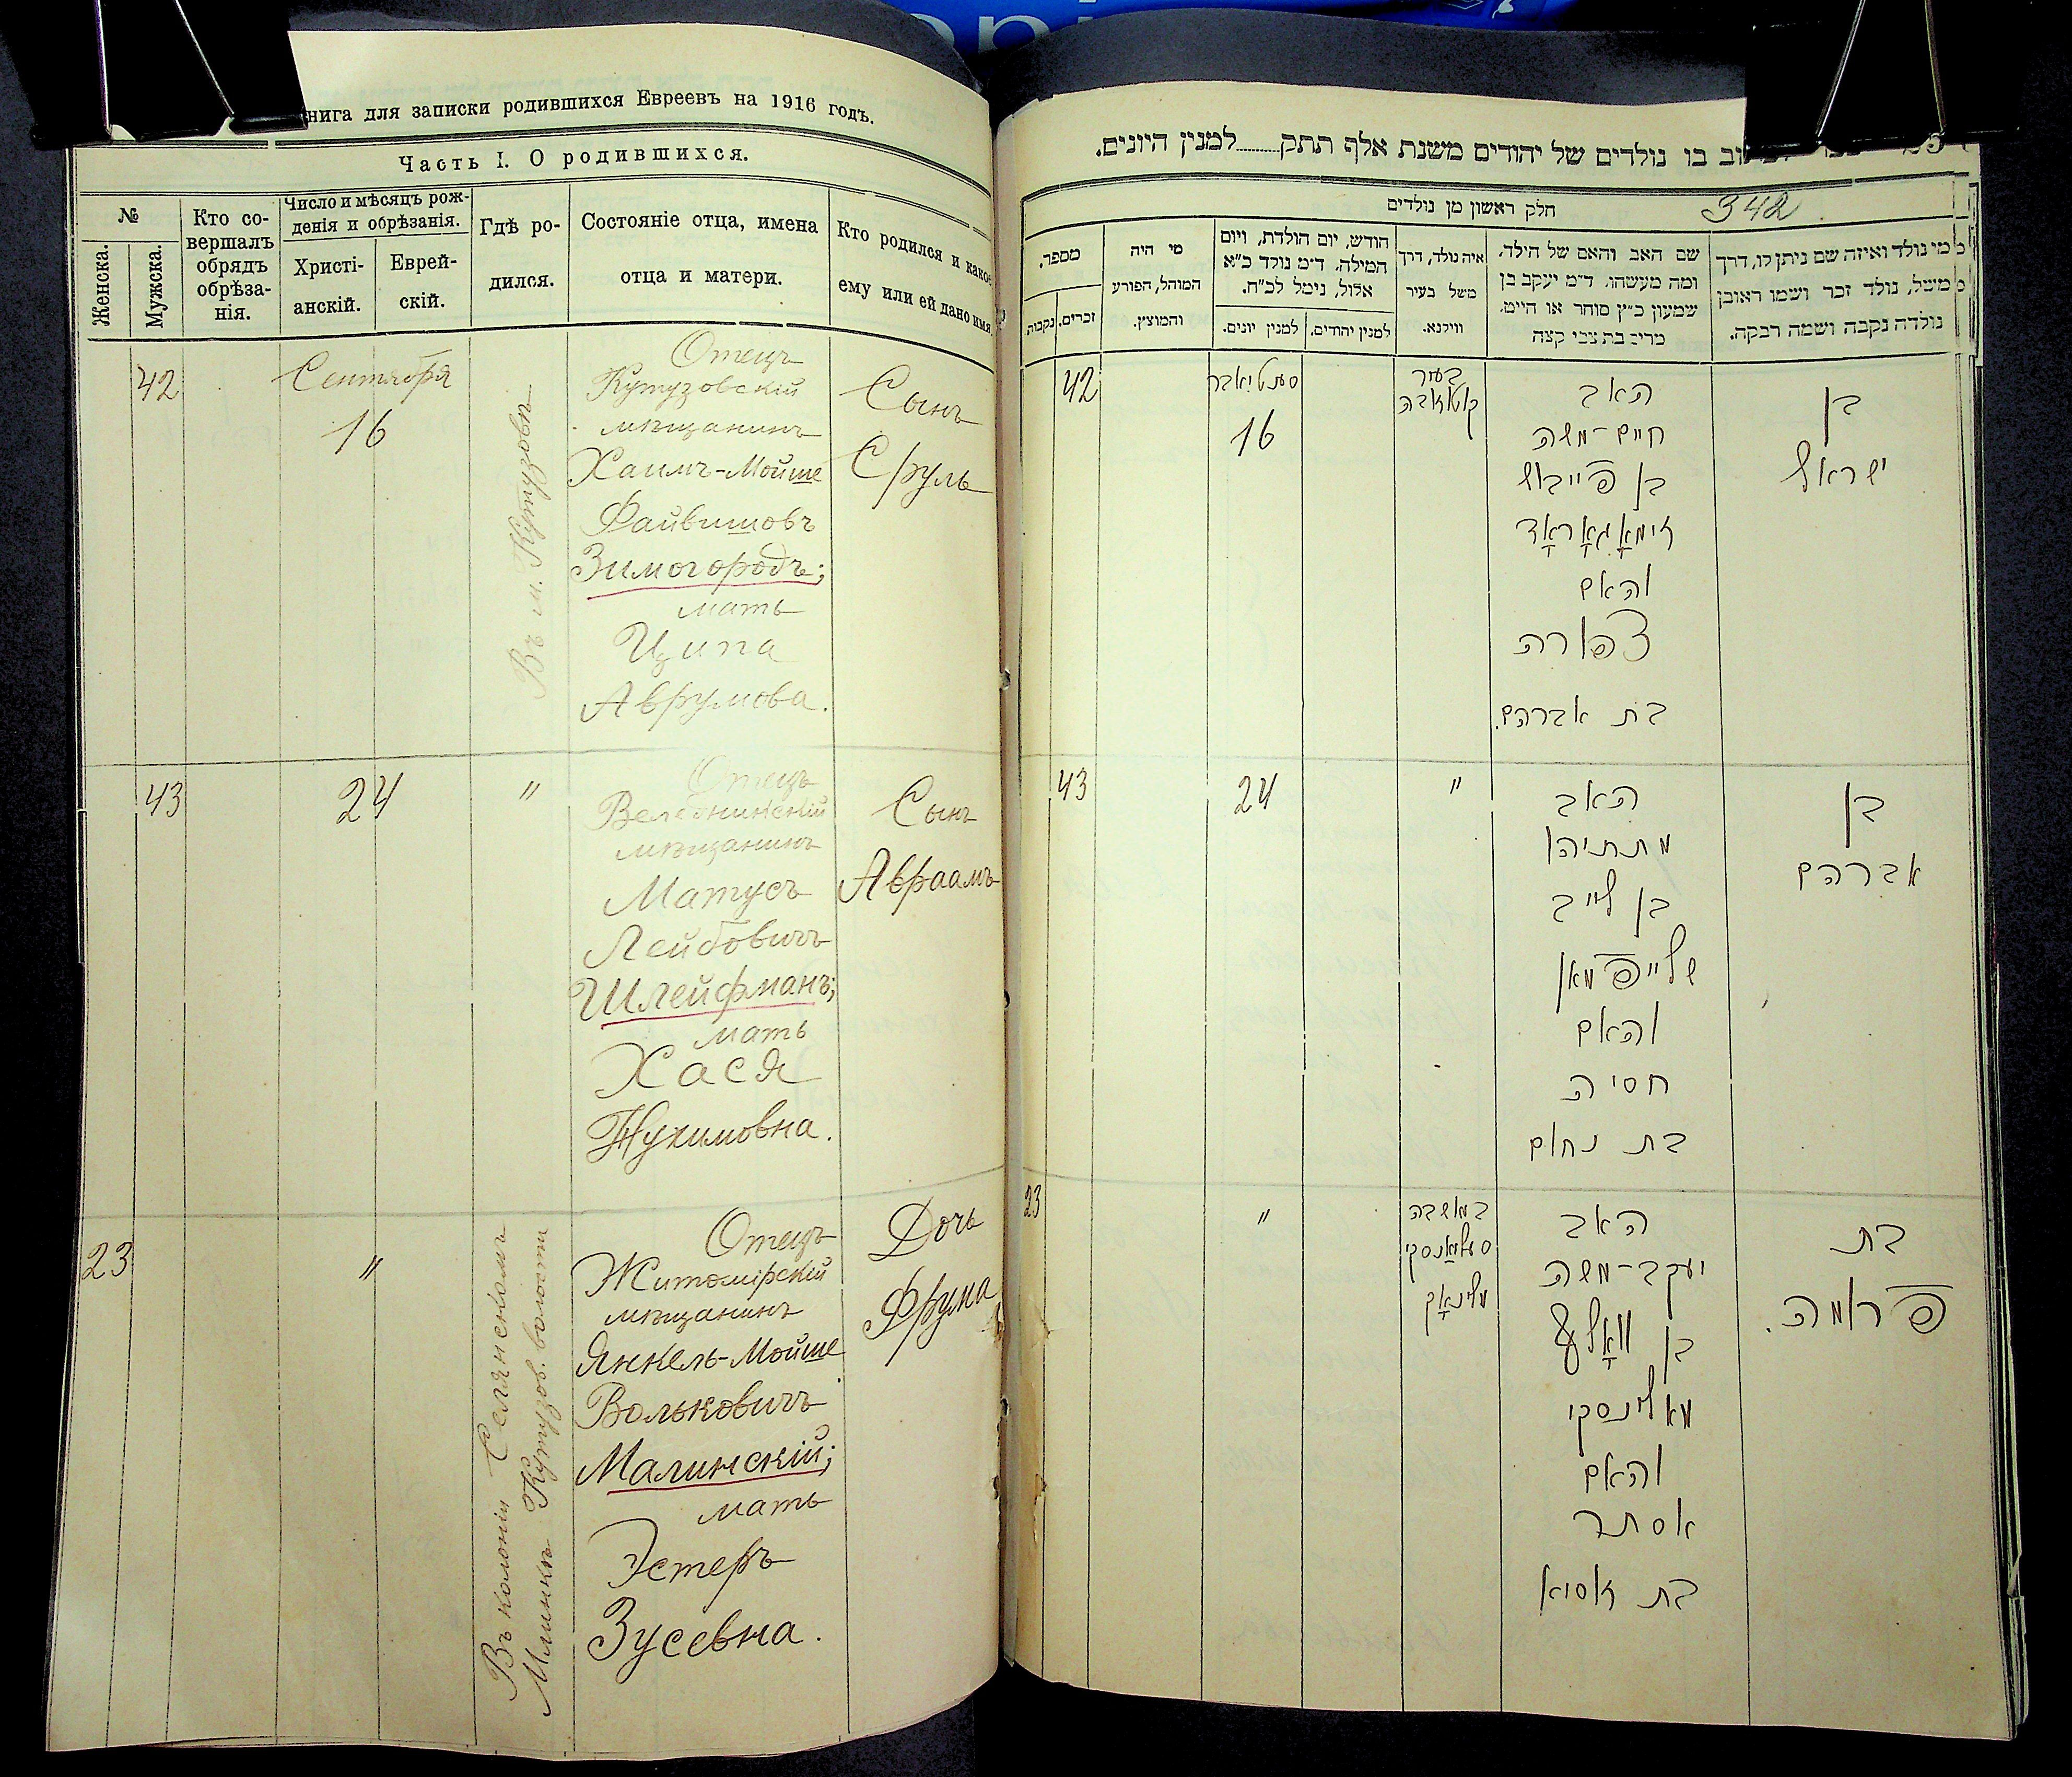 нига для записки родившихся Евреевъ на 1916 годъ.
Часть I. О родившихся.
№
Женска.
Мужска.
Кто со-
вершалъ
обрядъ
обрѣза-
нія.
Число и мѣсяцъ рож-
денія и обрѣзанія.
Христі-
анскій.
Еврей-
скій.
Гдѣ ро-
дился.
Состояніе отца, имена
отца и матери.
Кто родился и какое
ему или ей дано имя.
42
Сентября
16
Въ м. Кутузовъ
Отецъ
Кутузовскій
мѣщанинъ
Хаимъ-Мойше
Файвишовъ
Зимогородъ;
мать
Ципа
Аврумова.
Сынъ
Сруль
43
24
"
Отецъ
Веледникскій
мѣщанинъ
Матусъ
Лейбовичъ
Шлейфманъ;
мать
Хася
Нухимовна.
Сынъ
Авраамъ
23
"
Въ колоніи Селянскомъ
Млинкѣ Кутузов. волости
Отецъ
Житомірскій
мѣщанинъ
Янкель-Мойше
Вольковичъ
Малинскій;
мать
Эстеръ
Зусевна.
Дочь
Фрума
בו נולדים של יהודים משנת אלף תתק למנין היונים.
חלק ראשון מן נולדים
342
מספר.
נקבות.
זכרים.
מי היה
המוהל, הפורע
והמוצץ.
חודש, יום הולדת, ויום
המילה. ד״מ נולד כ״א
אלול, נימל לכ״ח.
למנין יונים.
למנין יהודים.
איה נולד, דרך
משל בעיר
ווילנא.
שם האב והאם של הילד.
ומה מעשהו. ד״מ יעקב בן
שמעון כ״ץ סוחר או חייט.
מרים בת צבי קצה
מי נולד ואיזה שם ניתן לו, דרך
משל, נולד זכר ושמו ראובן
נולדה נקבה ושמה רבקה.
42
סעפטיאבר
16
בעיר
קוטוזובה
האב
חיים-משה
בן פייבוש
זימאָגאָראָד
והאם
צפורה
בת אברהם.
בן
ישראל
43
24
"
האב
מתתיהו
בן לייב
שלייפמאן
והאם
חסיה
בת נחום
בן
אברהם
23
"
במושבה
סעליאַנסקי
מלינאָק
האב
יעקב-משה
בן וואָלף
מאלינסקי
והאם
אסתר
בת זוסיא
בת
פרומה.